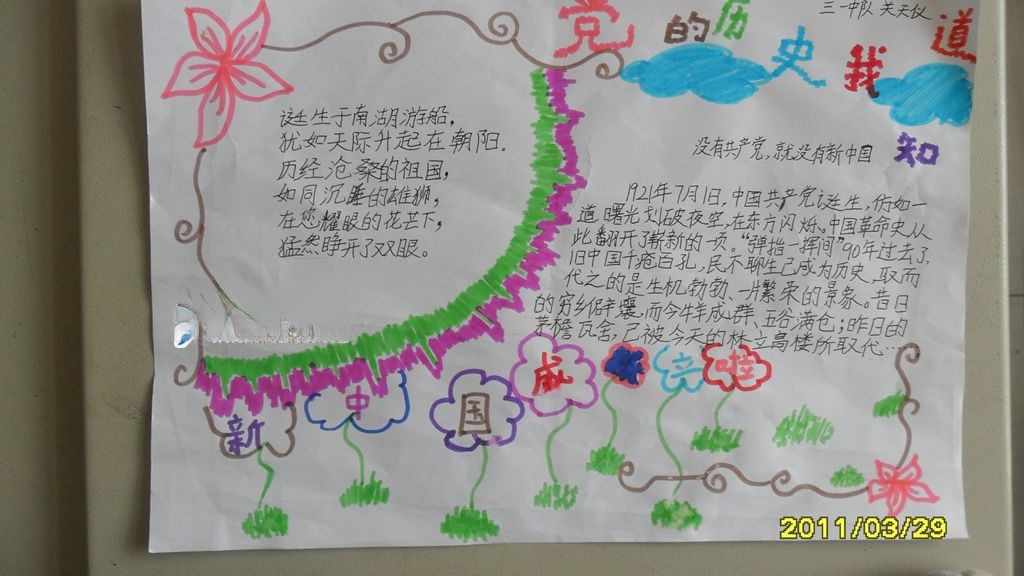 三一中队 关天仪
党的历史我知道
没有共产党，就没有新中国
诞生于南湖游船，
犹如天际升起在朝阳.
历经沧桑的祖国，
如同沉睡的雄狮，
在您耀眼的花芒下，
猛然睁开了双眼。
1921年7月1日，中国共产党诞生，仿如一
道曙光划破夜空，在东方闪烁。中国革命史从
此翻开了崭新的一页。“弹指一挥间”90年过去了，
旧中国千疮百孔，民不聊生已成为历史，取而
代之的是生机勃勃、一片繁荣的景象。昔日
的穷乡僻壤，而今牛羊成群、五谷满仓；昨日的
茅檐瓦舍，已被今天的林立高楼所取代…
新中国成立啦
2011/03/29